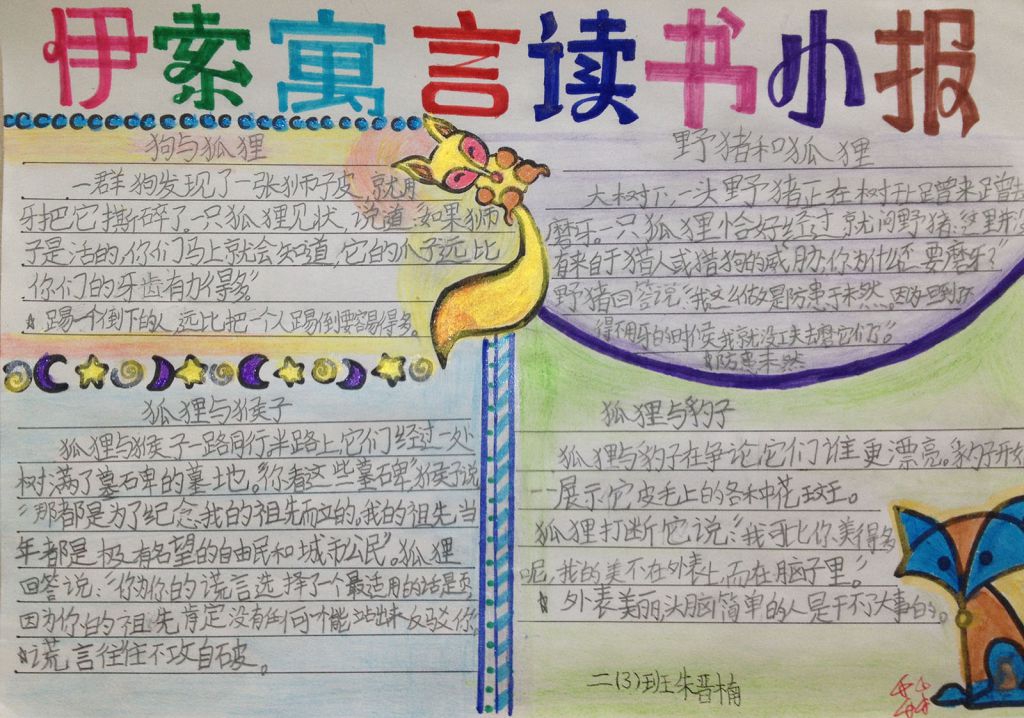 伊索寓言读书小报
狗与狐狸
一群狗发现了一张狮子皮,就用
牙把它撕碎了。一只狐狸见状,说道:如果狮
子是活的,你们马上就会知道,它的爪子远比
你们的牙齿有力得多。”
踢一个倒下的人,远比把一个人踢倒要容易得多。
野猪和狐狸
大树下,一头野猪正在树干上蹭来蹭去
磨牙。一只狐狸恰好经过,就问野猪:这里并没
有来自于猎人或猎狗的威胁,你为什么要磨牙?”
野猪回答说:“我这么做是防患于未然。因为一旦到了
得用牙的时候,我就没工夫去磨它们了。”
防患未然
狐狸与猴子
狐狸与猴子一路同行,半路上,它们经过一处
树满了墓石碑的墓地。“你看这些墓石碑”猴子说
“那都是为了纪念我的祖先而立的。我的祖先,当
年都是极有名望的自由民和城市公民”。狐狸
回答说:“你为你的谎言选择了个最适用的话题
因为你的祖先肯定没有任何可能站出来反驳你
谎言往往不攻自破。
狐狸与豹子
狐狸与豹子在争论,它们谁更漂亮。豹子开始
一一展示它皮毛上的各种花斑。
狐狸打断它说:“我可比你美得多
呢,我的美不在外表上,而在脑子里。”
外表美丽,头脑简单的人是干不了大事的。
二(3)班朱晋楠